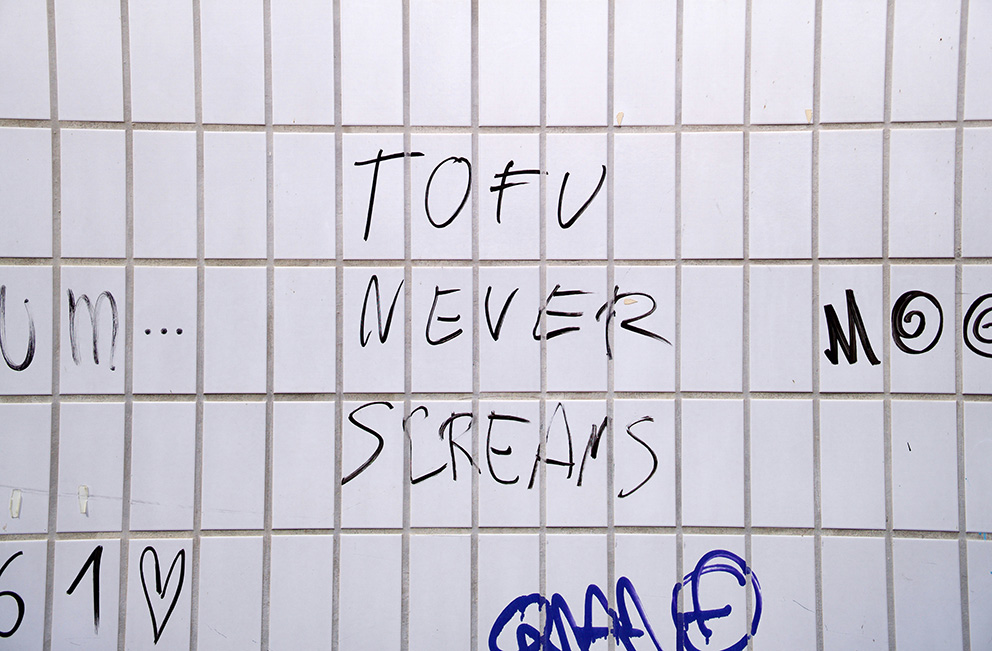 TOFU
UM...
NEVER
MOO
SCREAMS
61